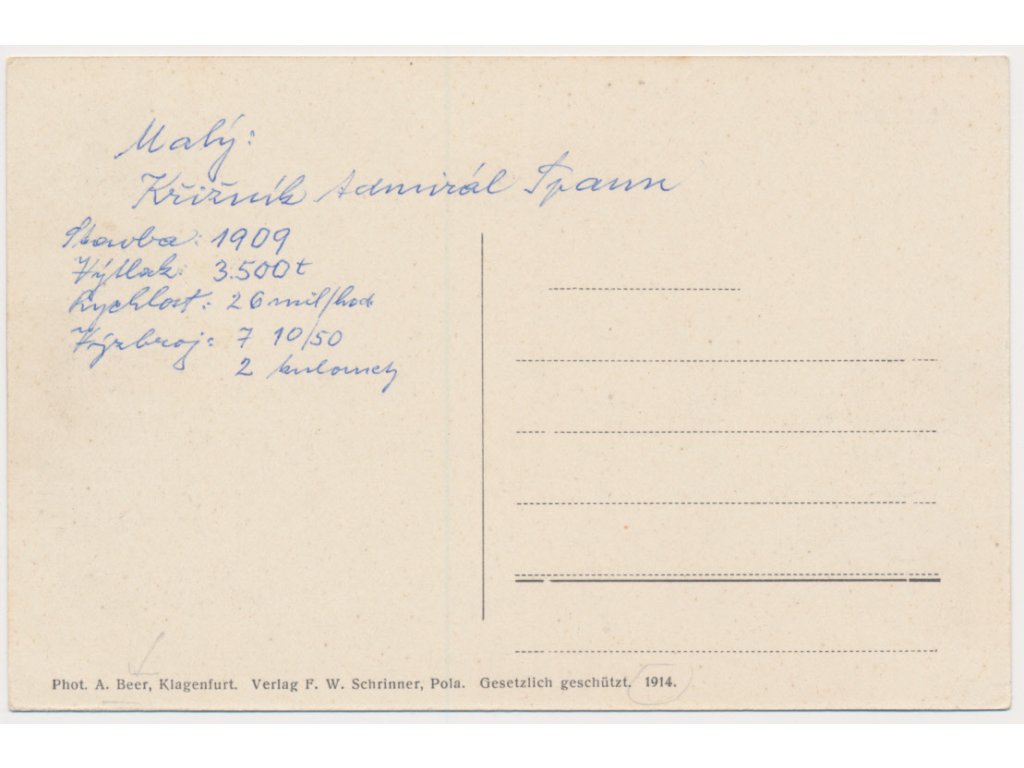 Malý:
Křižník Admirál Spaun
Stavba: 1909
Výtlak: 3.500t
Rychlost: 26 mil/hod
Výzbroj: 7 10/50
2 kulomety
Phot. A. Beer, Klagenfurt. Verlag F. W. Schrinner, Pola. Gesetzlich geschützt. 1914.